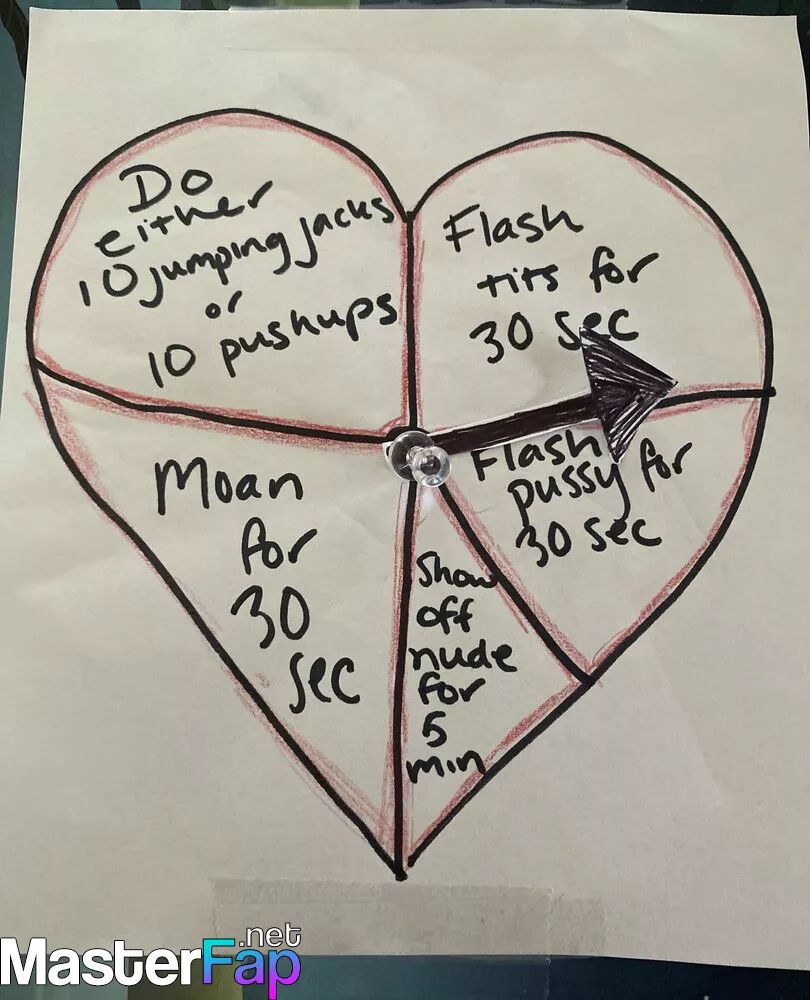 Do
either
10 jumping jacks
or
10 pushups
Flash
tits for
30 sec
Flash
pussy for
30 sec
Show
off
nude
for
5
min
Moan
for
30
sec
MasterFap.net